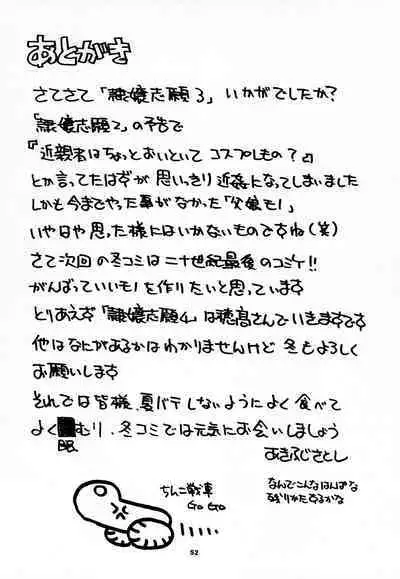 あとがき
さてさて「隷嬢志願3」いかがでしたか?
「隷嬢志願2」の予告で
『近親者はちょっとおいといて コスプレもの?』
とか言ってたはずが思いっきり近姦になってしまいました
しかも今までやった事がなかった「父娘モノ」
いやはや思った様にはいかないものですね(笑)
さて次回の冬コミは二十世紀最後のコミケ!!
がんばっていいモノを作りたいと思っています
とりあえず「隷嬢志願4」は穂高さんでいきますです
他はなにがあるかはわかりませんけど 冬もよろしく
お願いします
それでは皆様、夏バテしないようによく食べて
よく むり、冬コミでは元気にお会いしましょう
あきふじさとし
ちんこ戦車
GO GO
なんでこんなはんぱな
残りかたするかな
52